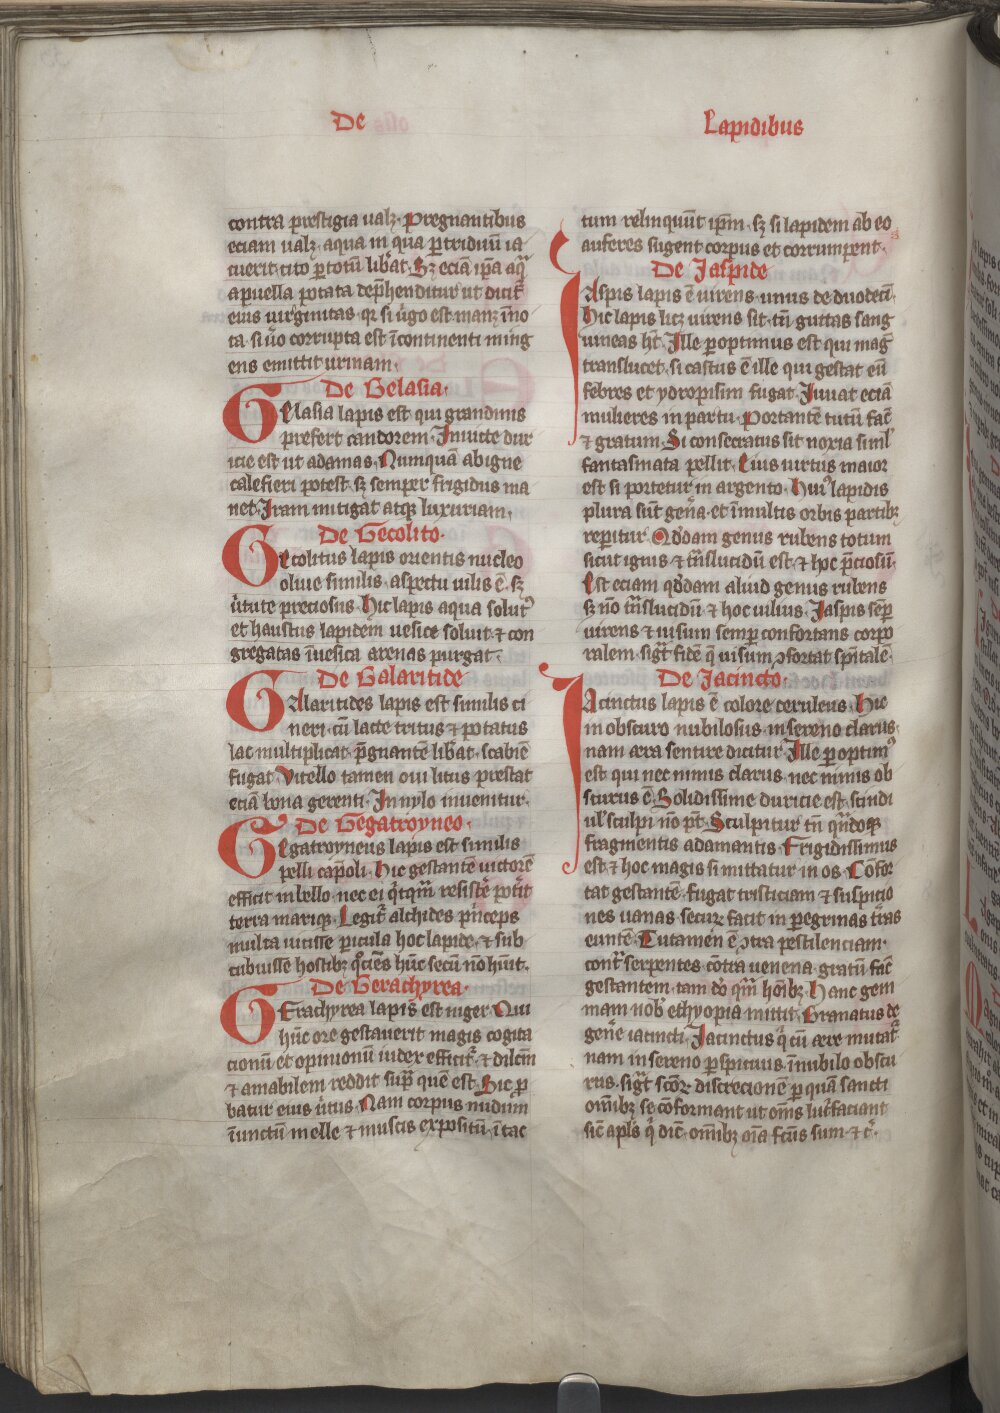 De Lapidibus
contra prestigia ualꝫ. Pregnantibus
eciam ualꝫ. aqua in qua ꝑtriduū ia
cuerit. cito ꝑtotū libat. Sꝫ eciā ip̄a aq̄
a puella potata dep̄henditur ut dicit̄
eius uirginitas. qr si u̇go est. manꝫ īmo
ta. si ūo corrupta est īcontinenti ming
ens emittit urinam.
De Gelasia.
Gelasia lapis est qui grandinis
prefert candorem. Inuicte dur
icie est ut adamas. Numquā ab igne
calefieri potest. sꝫ semper frigidus ma
net. Iram mitigat atqꝫ luxuriam.
De Gecolito.
Gecolitus lapis orientis nucleo
oliue similis. aspectu uilis ē. sꝫ
u̇tute preciosus. Hic lapis aqua soluit᷒
et haustus lapidem uesice soluit. ⁊ con
gregatas īuesica arenas purgat.
De Galaritide
Galaritides lapis est similis ci
neri. cū lacte tritus ⁊ potatus
lac multiplicat. p̄gnantē libat. scabiē
fugat. Vitello tamen oui litus prestat
eciā bona gerenti. In nylo inuenitur.
De Gegatroyneo.
Gegatroyneus lapis est similis
pelli cap̄oli. Hic gestantē uictorē
efficit in bello. nec ei q̇tqm̄ resistē potit
terra mariqꝫ. Legit̄ alchides pn̄ceps
multa uicisse ꝑicula hoc lapide. ⁊ sub
cubuisse hostibꝫ q̊ciēs hūc secū nō hūit.
De Gerachyrea.
Gerachyrea lapis est niger. Qui
hūc ore gestauerit magis cogita
cionū et opinionū iudex efficit̄. ⁊ dilcm̄
⁊ amabilem reddit sup̄ quē est. Hic ꝓ
batur eius u̇tus. Nam corpus nudum
īunctū melle ⁊ muscis expositū. ītac
tum relinquūt ip̄m. sꝫ si lapidem ab eo
auferes sugent corpus et corrumpent.
De Jaspide
Iaspis lapis ē uirens. unus de duodeci.
Hic lapis licꝫ uirens sit. tn̄ guttas sang
uineas hꝫ. Ille ꝑoptimus est qui mag̃
translucet. si castus ē ille qui gestat eū
febres et ydropisim fugat. Iuuat eciā
mulieres in partu. Portantē tutū facit̄
⁊ gratum. Si consecratus sit noxia siml̄
fantasmata pellit. Eius uirtus maior
est si portetur in argento. Hui᷒ lapidis
plura sūt gen̄a. et īmultis orbis partibꝫ
reꝑitur. Qōdam genus rubens totum
sicut ignis ⁊ tn̄slucidū est. ⁊ hoc p̄ciosū.
Est eciam qōdam aliud genus rubens
sꝫ nō tn̄slucidū. ⁊ hoc uilius. Iaspis sēp̄
uirens ⁊ uisum semꝑ confortans corpo
ralem. sigt̄ fidē q̄ uisum ↄfortat spn̄talē.
De Jacincto.
Iacinctus lapis ē colore ceruleus. Hic
in obscuro nubilosus in sereno clarus.
nam aera sentire dicitur. Ille ꝑoptim᷒
est qui nec nimis clarus. nec nimis ob
scurus ē. Solidissime duricie est. scindi
ul̄ sculpi nō pt̄. Sculpitur tn̄ qn̄doqꝫ
fragmentis adamantis. Frigidissimus
est. ⁊ hoc magis si mittatur in os. Cōfor
tat gestantē. fugat tristiciam ⁊ suspicio
nes uanas. securꝫ facit in ꝑegrinas tr̄as
euntē. Tutamen ē ↄtra pestilenciam.
cont̄ serpentes. cōtra uenena. gratū facit̄
gestantem. tam dō qm̄ hōibꝫ. Hanc gem
mam nob᷒ ethyopia mittit. Granatus de
gen̄e iacincti. Jacinctus q̇ cū aere mutat̄.
nam in sereno ꝑspicuus. īnubilo obscu
rus. sigt̄ scōꝝ discrecionē ꝑ quā sancti
om̄ibꝫ se cōformant ut om̄s lucr̄ faciant
sic̄ apl̄s q̇ dic̄. om̄ibꝫ oīa fcūs sum. ⁊ c̄.